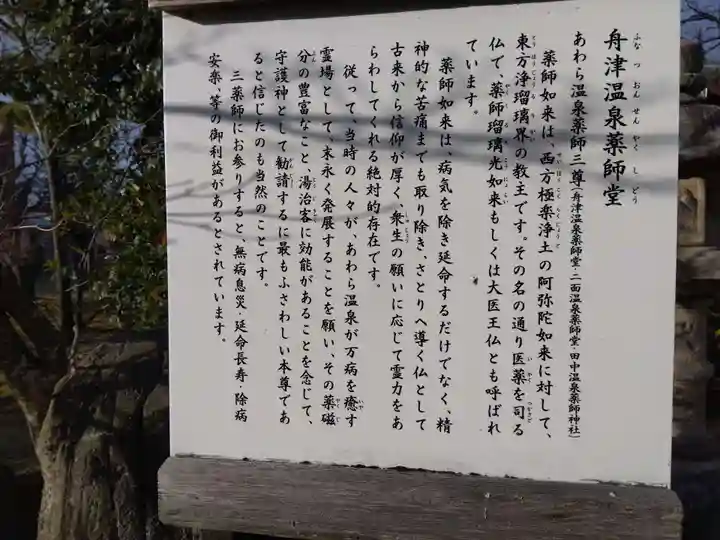 舟津温泉薬師堂
ふなつおんせんやくしどう
あわら温泉薬師三尊(舟津温泉薬師堂・二面温泉薬師堂・田中温泉薬師神社)
薬師如来は、西方極楽浄土の阿弥陀如来に対して、
東方浄瑠璃界の教主です。その名の通り医薬を司る
仏で、薬師瑠璃光如来もしくは大医王仏とも呼ばれ
ています。
薬師如来は、病気を除き延命するだけでなく、精
神的な苦痛までも取り除き、さとりへ導く仏として
古来から信仰が厚く、衆生の願いに応じて霊力をあ
らわしてくれる絶対的存在です。
従って、当時の人々が、あわら温泉が万病を癒す
霊場として、末永く発展することを願い、その薬磁
分の豊富なこと湯治客に効能があることを念じて、
守護神として勧請するに最もふさわしい本尊であ
ると信じたのも当然のことです。
三薬師にお参りすると、無病息災・延命長寿・除病
安楽、等の御利益があるとされています。